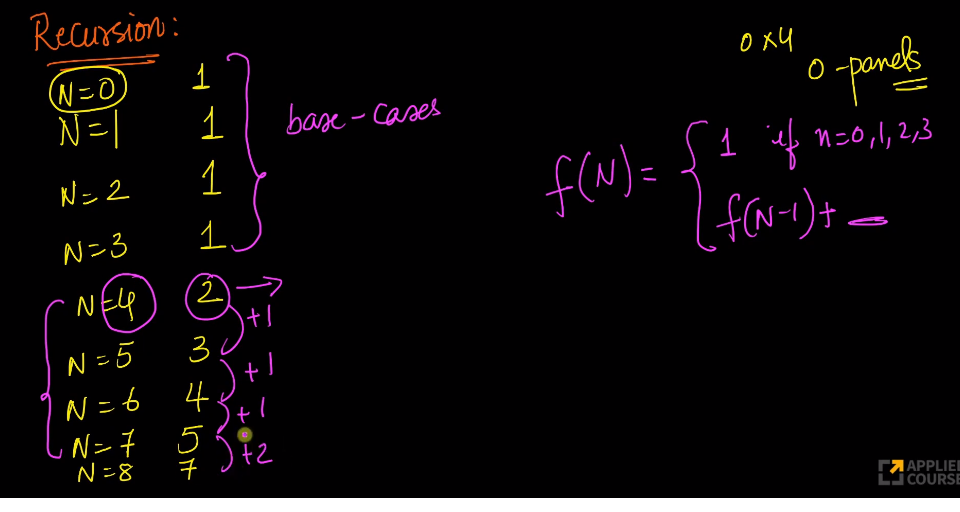 Recursion:
N=0 1
N=1 1
N=2 1
N=3 1
base-cases
N=4 2
+1
N=5 3
+1
N=6 4
+1
N=7 5
+2
N=8 7
0x4
0-panels
f(N)= { 1 if n=0,1,2,3
f(N-1)+ —
APPLIED
COURSE